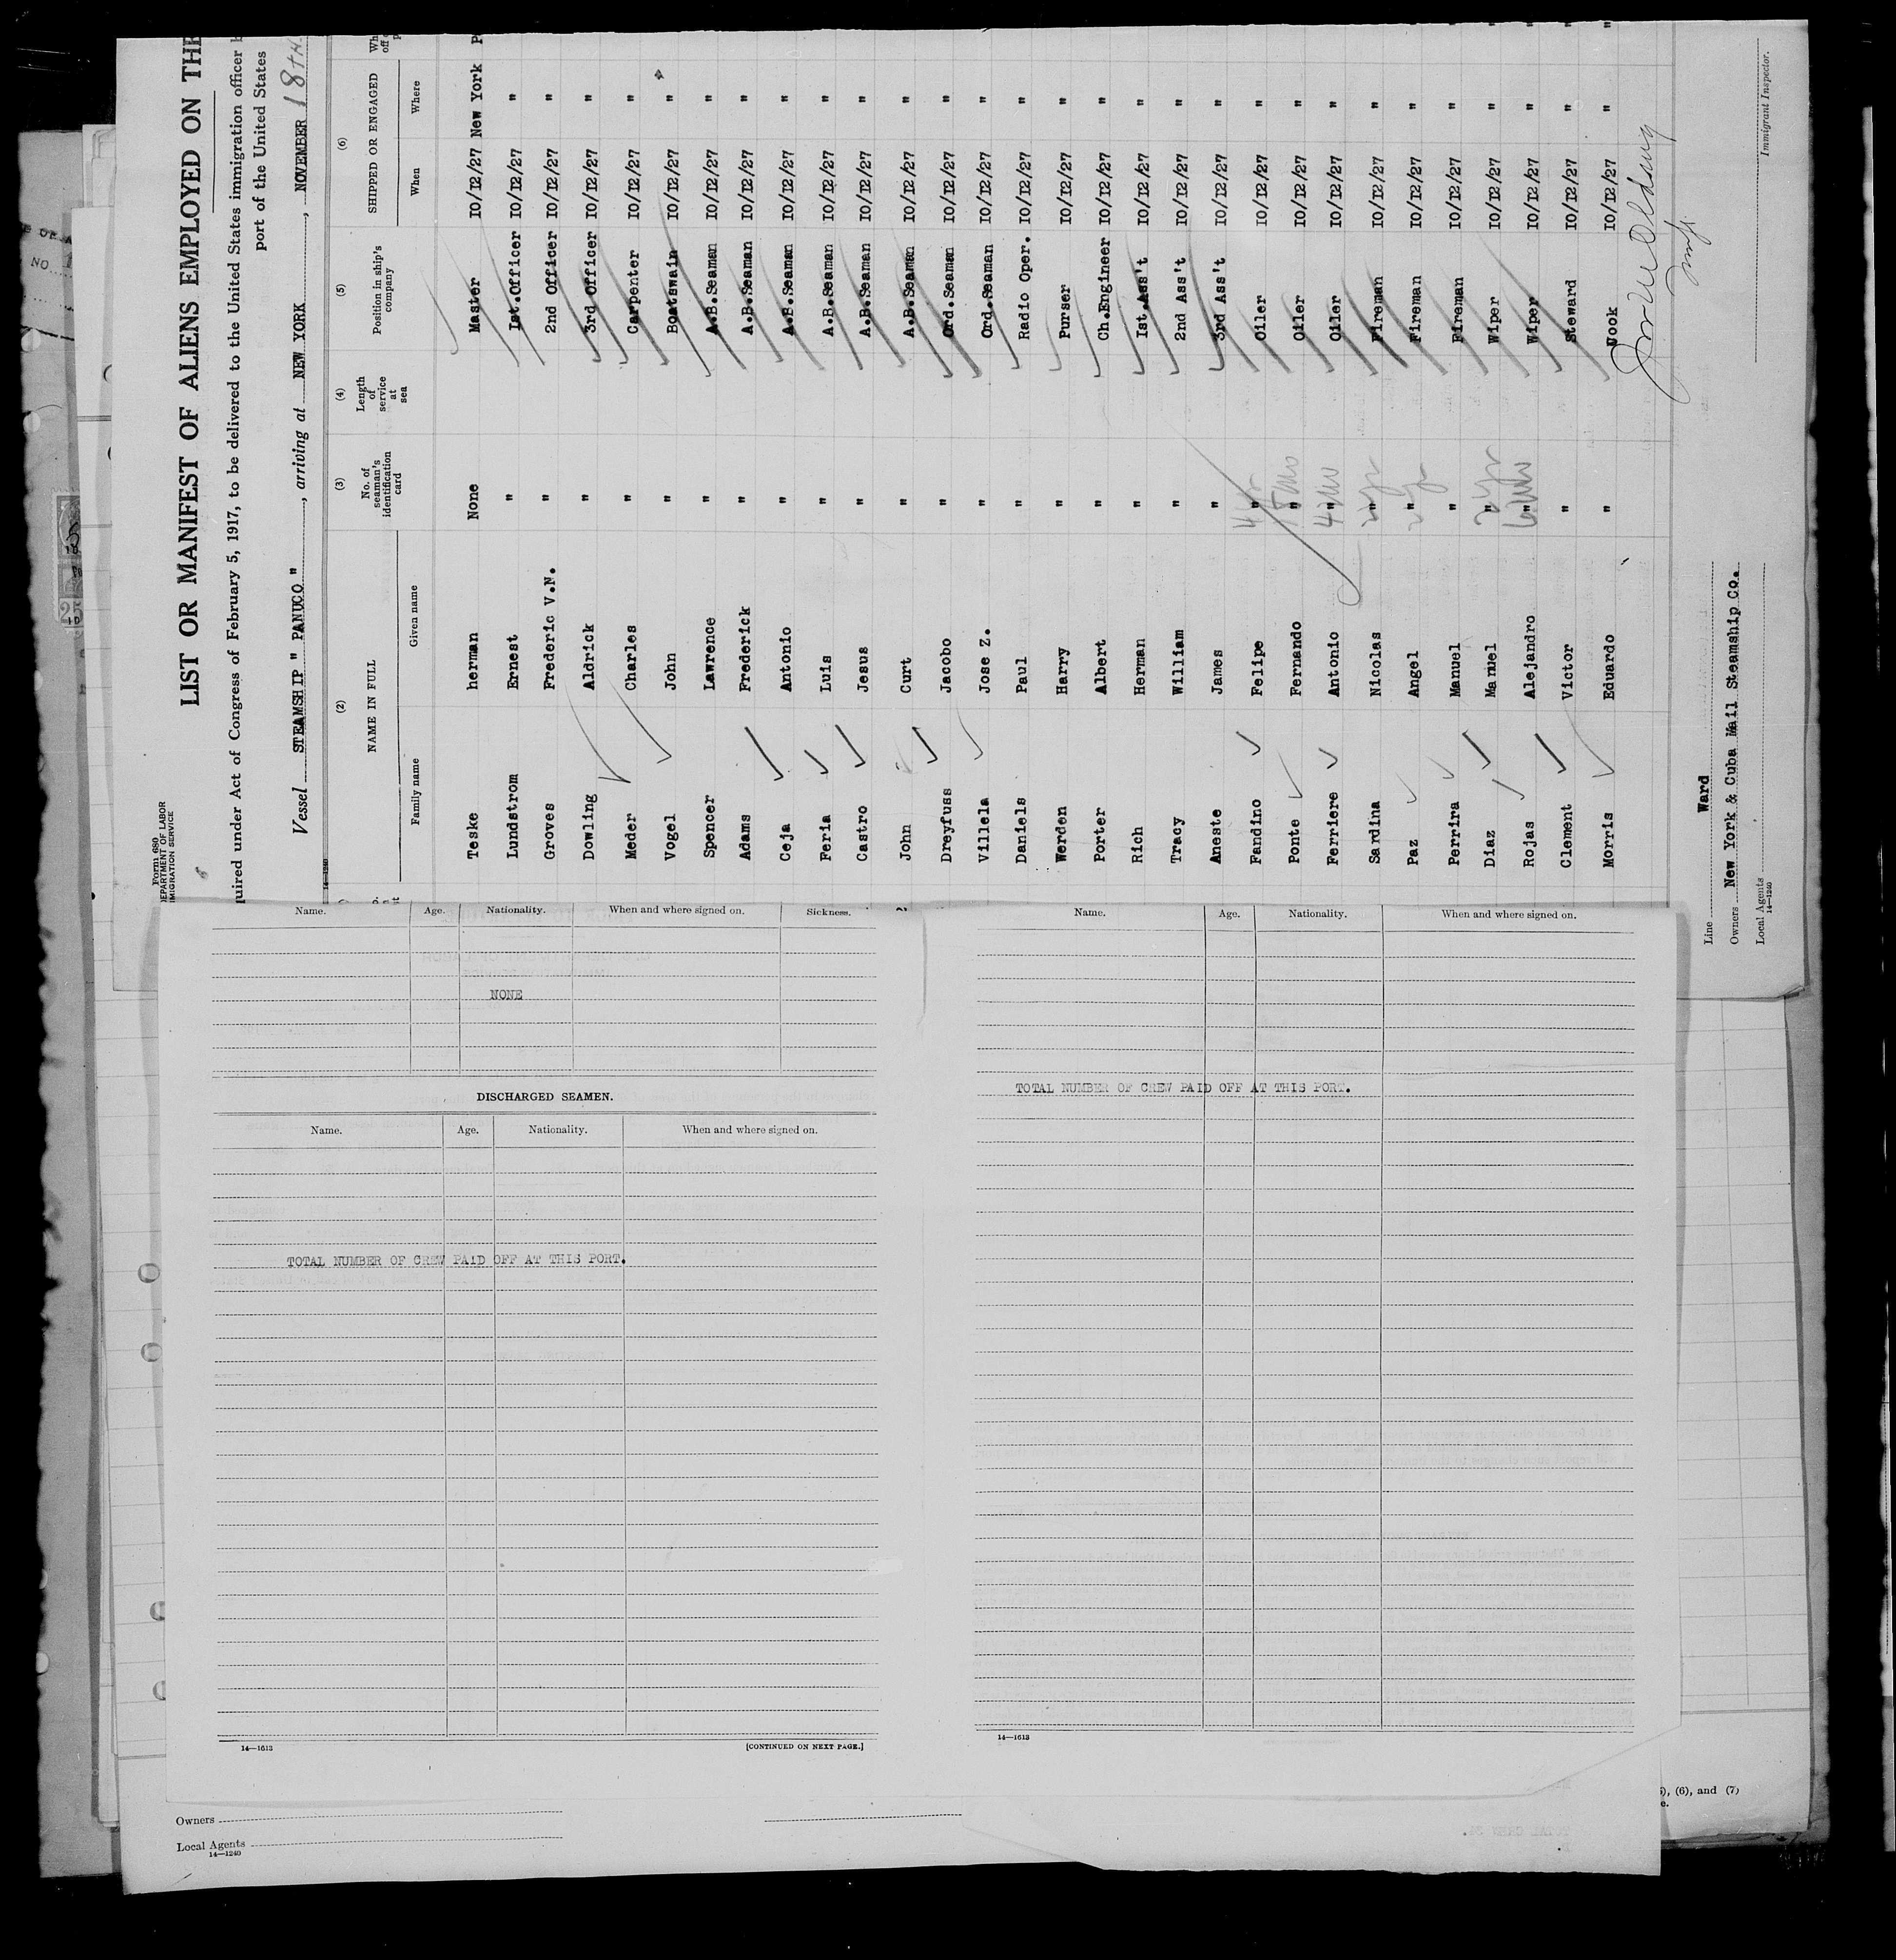 Form 680
DEPARTMENT OF LABOR
IMMIGRATION SERVICE
LIST OR MANIFEST OF ALIENS EMPLOYED ON THE
quired under Act of Congress of February 5, 1917, to be delivered to the United States immigration officer
port of the United States
Vessel STEAMSHIP " PANUCO ", arriving at NEW YORK, NOVEMBER 18TH.
14—1240
(2) (3) (4) (5) (6)
NAME IN FULL No. of seaman's identification card Length of service at sea Position in ship's company SHIPPED OR ENGAGED
Family name Given name When Where
Teske herman None Master 10/12/27 New York
Lundstrom Ernest " 1st.Officer 10/12/27 "
Groves Frederic V.N. " 2nd Officer 10/12/27 "
Dowling Aldrick " 3rd Officer 10/12/27 "
Meder Charles " Carpenter 10/12/27 "
Vogel John " Boatswain 10/12/27 "
Spencer Lawrence " A.B.Seaman 10/12/27 "
Adams Frederick " A.B.Seaman 10/12/27 "
Ceja Antonio " A.B.Seaman 10/12/27 "
Feria Luis " A.B.Seaman 10/12/27 "
Castro Jesus " A.B.Seaman 10/12/27 "
John Curt " A.B.Seaman 10/12/27 "
Dreyfuss Jacobo " Ord.Seaman 10/12/27 "
Villela Jose Z. " Ord.Seaman 10/12/27 "
Daniels Paul " Radio Oper. 10/12/27 "
Werden Harry " Purser 10/12/27 "
Porter Albert " Ch.Engineer 10/12/27 "
Rich Herman " Ist.Ass't 10/12/27 "
Tracy William " 2nd Ass't 10/12/27 "
Aneste James " 3rd Ass't 10/12/27 "
Fandino Felipe " Oiler 10/12/27 "
Ponte Fernando " Oiler 10/12/27 "
Ferriere Antonio " Oiler 10/12/27 "
Sardina Nicolas " Fireman 10/12/27 "
Paz Angel " Fireman 10/12/27 "
Perrira Manuel " Fireman 10/12/27 "
Diaz Manuel " Wiper 10/12/27 "
Rojas Alejandro " Wiper 10/12/27 "
Clement Victor " Steward 10/12/27 "
Morris Eduardo " Cook 10/12/27 "
Line Ward
Owners New York & Cuba Mail Steamship Co.
Local Agents
14—1240
Immigrant Inspector.
Name. Age. Nationality. When and where signed on. Sickness.
NONE
DISCHARGED SEAMEN.
Name. Age. Nationality. When and where signed on.
TOTAL NUMBER OF CREW PAID OFF AT THIS PORT.
14—1613 [CONTINUED ON NEXT PAGE.]
Name. Age. Nationality. When and where signed on.
TOTAL NUMBER OF CREW PAID OFF AT THIS PORT.
14—1613
), (6), and (7)
Owners
Local Agents
14—1240